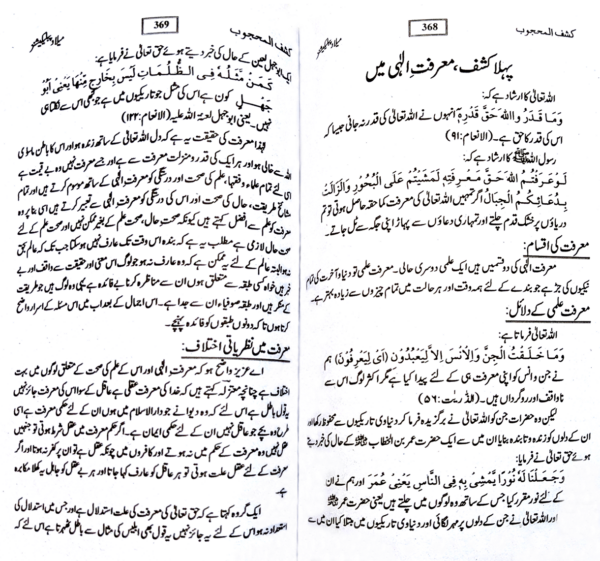 368
کشف المحجوب
میلاد پبلیکیشنز
پہلا کشف، معرفتِ الٰہی میں
اللہ تعالیٰ کا ارشاد ہے کہ:
وَمَا قَدَرُوا اللہَ حَقَّ قَدْرِہٖ انہوں نے اللہ تعالیٰ کی قدر نہ جانی جیسا کہ
اس کی قدر کا حق ہے۔ (الانعام:۹۱)
رسول اللہ ﷺ کا ارشاد ہے کہ:
لَوْعَرَفْتُمُ اللہَ حَقَّ مَعْرِفَتِہٖ لَمَشَیْتُمْ عَلَی الْبُحُوْرِ وَلَزَالَتْ
بِدُعَائِکُمُ الْجِبَالُ اگر تمہیں اللہ تعالیٰ کی معرفت کما حقہ حاصل ہوتی تو تم
دریاؤں پر خشک قدم چلتے اور تمہاری دعاؤں سے پہاڑ اپنی جگہ سے ٹل جاتے۔
معرفت کی اقسام:
معرفت الٰہی کی دو قسمیں ہیں ایک علمی دوسری حالی۔ معرفت علمی تو دنیا و آخرت کی تمام
نیکیوں کی جڑ ہے جو بندے کے لئے ہمہ وقت اور ہر حالت میں تمام چیزوں سے زیادہ بہتر ہے۔
معرفت علمی کے دلائل:
اللہ تعالیٰ فرماتا ہے:
وَمَا خَلَقْتُ الْجِنَّ وَالْاِنْسَ اِلَّا لِیَعْبُدُوْنَ (اَیْ لِیَعْرِفُوْنِ) ہم
نے جن و انس کو اپنی معرفت ہی کے لئے پیدا کیا ہے مگر اکثر لوگ اس سے
ناواقف اور روگرداں ہیں۔ (الذّٰریٰت:۵۶)
لیکن وہ حضرات جن کو اللہ تعالیٰ نے برگزیدہ فرما کر دنیاوی تاریکیوں سے محفوظ رکھا اور
ان کے دلوں کو زندہ و تابندہ بنایا ان میں سے ایک حضرت عمر بن الخطاب کے حال کی خبر دیتے
ہوئے حق تعالیٰ نے فرمایا۔
وَجَعَلْنَا لَہٗ نُوْرًا یَّمْشِیْ بِہٖ فِی النَّاسِ یَعْنِیْ عُمَرَ اور ہم نے ان
کے لئے نور مقرر کیا جس کے ساتھ وہ لوگوں میں چلتے ہیں یعنی حضرت عمر
اور اللہ تعالیٰ نے جن کے دلوں پر مہر لگائی اور دنیاوی تاریکیوں میں مبتلا کیا ان میں سے
369
کشف المحجوب
میلاد پبلیکیشنز
ایک ابوجہل لعین کے حال کی خبر دیتے ہوئے حق تعالیٰ نے فرمایا ہے:
کَمَنْ مَّثَلُہٗ فِی الظُّلُمَاتِ لَیْسَ بِخَارِجٍ مِّنْھَا یَعْنِیْ اَبُوْ
جَھْلٍ کون ہے اس کی مثل جو تاریکیوں میں ہے جو کبھی اس سے نکلتا ہی
نہیں۔ یعنی ابوجہل لعنۃ اللہ علیہ۔ (الانعام:۱۲۲)
لہٰذا معرفت کی حقیقت یہ ہے کہ دل اللہ تعالیٰ کے ساتھ زندہ ہو اور اس کا باطن ماسوی
اللہ سے خالی ہو اور ہر ایک کی قدر و منزلت معرفت سے ہے اور جسے معرفت نہیں وہ بے قیمت ہے
اسی لئے تمام علماء و فقہا، علم کی صحت اور درستگی کو معرفت الٰہی کے ساتھ موسوم کرتے ہیں اور تمام
مشائخ طریقت، حال کی صحت اور اس کی درستگی کو معرفت الٰہی سے تعبیر کرتے ہیں اسی بنا پر وہ
معرفت کو علم سے افضل کہتے ہیں کیونکہ صحتِ حال، صحتِ علم کے بغیر ممکن نہیں اور صحتِ علم کے لئے
صحتِ حال لازمی ہے مطلب یہ ہے کہ بندہ اس وقت تک عارف نہیں ہو سکتا جب تک کہ عالم بحق
نہ ہو البتہ عالم کے لئے یہ ممکن ہے کہ وہ عارف نہ ہو جو لوگ اس معنی اور حقیقت سے واقف اور بے
خبر ہیں خواہ کسی طبقہ سے متعلق ہوں ان سے مناظرہ کرنا بے فائدہ ہے یہی وہ لوگ ہیں جو طریقت
کے منکر ہیں اور طبقہ صوفیاء ان سے جدا ہے۔ اس اجمال کے بعد اب میں اس مسئلہ کے اسرار واضح
کرتا ہوں تاکہ دونوں طبقوں کو فائدہ پہنچے۔
معرفت میں نظریاتی اختلاف:
اے عزیز واضح ہو کہ معرفت الٰہی اور اس کے علم کی صحت کے متعلق لوگوں میں بہت
اختلاف ہے چنانچہ معتزلہ کہتے ہیں کہ خدا کی معرفت عقلی ہے عاقل کے سوا اس کی معرفت جائز نہیں
یہ قول باطل ہے اس لئے کہ وہ دیوانے جو دارالاسلام میں ہوں ان کے لئے حکم معرفت ہے اسی
طرح وہ بچے جو عاقل نہیں ان کے لئے حکمی ایمان ہے۔ اگر حکم معرفت میں عقل شرط ہوتی تو جنہیں
عقل نہیں وہ معرفت کے حکم میں نہ ہوتے اور کافروں میں چونکہ عقل ہے تو ان پر کفر نہ ہوتا اور اگر
معرفت کے لئے عقل علت ہوتی تو ہر عاقل کو عارف کہا جاتا اور ہر بے عقل کو جاہل یہ کھلا مکابرہ
ہے۔
ایک گروہ کہتا ہے کہ حق تعالیٰ کی معرفت کی علت استدلال ہے اور جس میں استدلال کی
استعداد نہ ہو اس کے لئے یہ جائز نہیں یہ قول بھی ابلیس کی مثال سے باطل ٹھہرتا ہے اس لئے کہ